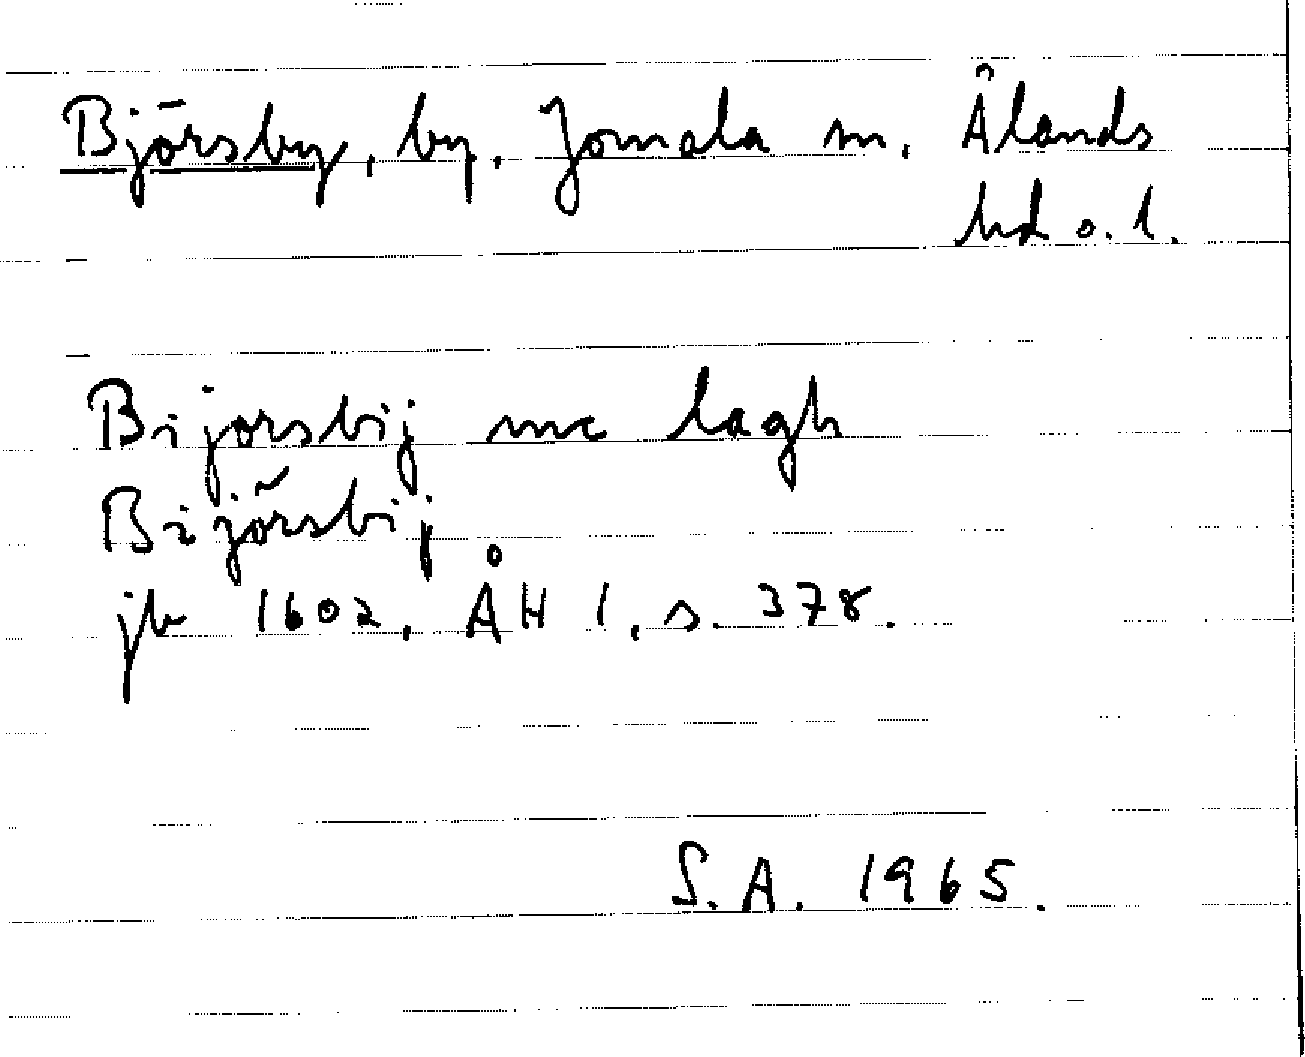 Björsby, by. Jomala sn. Ålands
hd o. l.
Bijorsbij mc lagh
Bijõrsbij
jb 1602. ÅH 1, s. 378.
S.A. 1965.